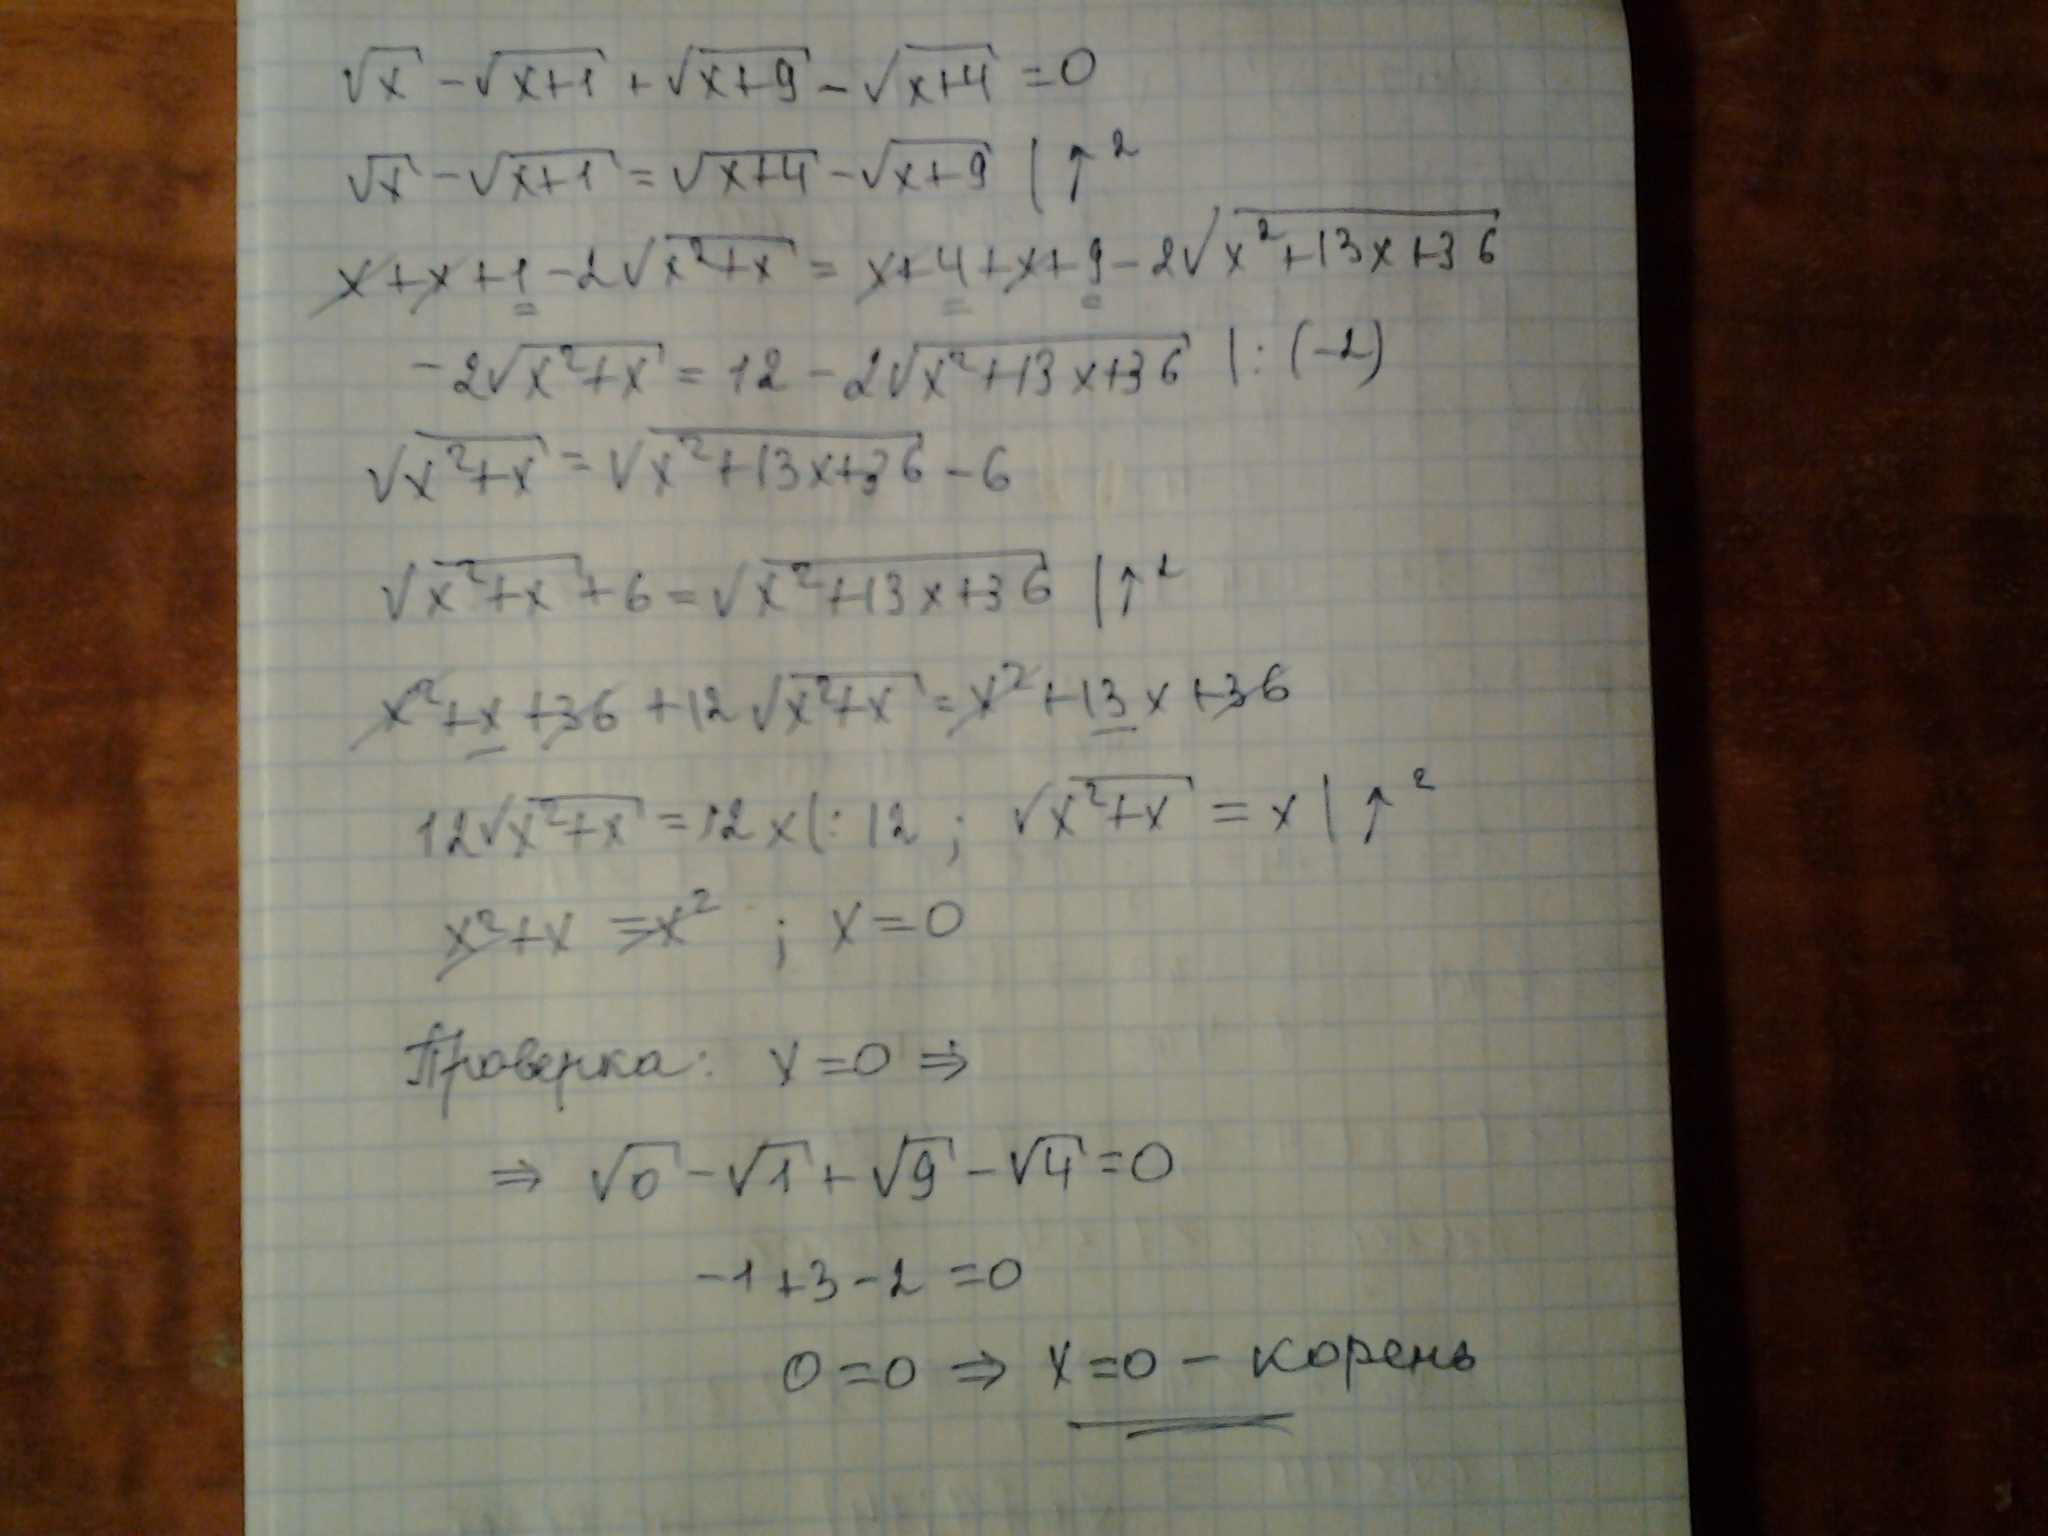 √x - √(x+1) + √(x+9) - √(x+4) = 0
√x - √(x+1) = √(x+4) - √(x+9) | ↑²
x + x + 1 - 2√(x²+x) = x + 4 + x + 9 - 2√(x²+13x+36)
-2√(x²+x) = 12 - 2√(x²+13x+36) | : (-2)
√(x²+x) = √(x²+13x+36) - 6
√(x²+x) + 6 = √(x²+13x+36) | ↑²
x² + x + 36 + 12√(x²+x) = x² + 13x + 36
12√(x²+x) = 12x | : 12 ; √(x²+x) = x | ↑²
x² + x = x² ; x = 0
Проверка: x = 0 ⇒
⇒ √0 - √1 + √9 - √4 = 0
-1 + 3 - 2 = 0
0 = 0 ⇒ x = 0 - корень